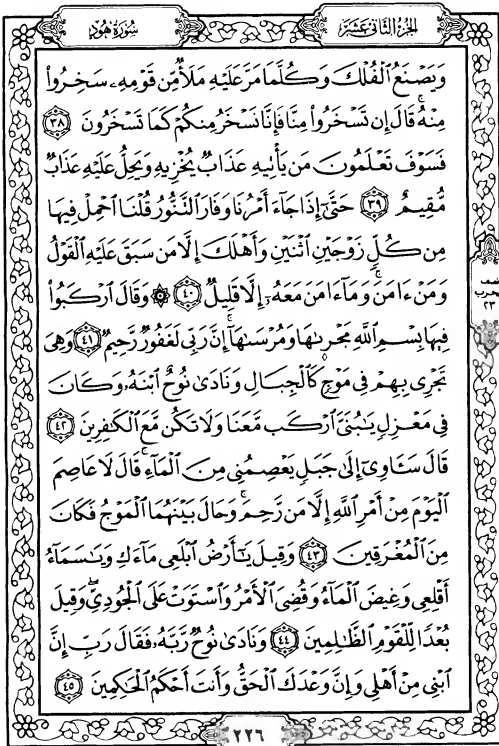 الجزء الثاني عشر
سورة هود
وَيَصْنَعُ ٱلْفُلْكَ وَكُلَّمَا مَرَّ عَلَيْهِ مَلَأٌ مِّن قَوْمِهِۦ سَخِرُوا۟
مِنْهُ ۚ قَالَ إِن تَسْخَرُوا۟ مِنَّا فَإِنَّا نَسْخَرُ مِنكُمْ كَمَا تَسْخَرُونَ ٣٨
فَسَوْفَ تَعْلَمُونَ مَن يَأْتِيهِ عَذَابٌ يُخْزِيهِ وَيَحِلُّ عَلَيْهِ عَذَابٌ
مُّقِيمٌ ٣٩ حَتَّىٰٓ إِذَا جَآءَ أَمْرُنَا وَفَارَ ٱلتَّنُّورُ قُلْنَا ٱحْمِلْ فِيهَا
مِن كُلٍّ زَوْجَيْنِ ٱثْنَيْنِ وَأَهْلَكَ إِلَّا مَن سَبَقَ عَلَيْهِ ٱلْقَوْلُ
وَمَنْ ءَامَنَ ۚ وَمَآ ءَامَنَ مَعَهُۥٓ إِلَّا قَلِيلٌ ٤٠ ۞ وَقَالَ ٱرْكَبُوا۟
فِيهَا بِسْمِ ٱللَّهِ مَجْر۪ىٰهَا وَمُرْسَىٰهَآ ۚ إِنَّ رَبِّى لَغَفُورٌ رَّحِيمٌ ٤١ وَهِىَ
تَجْرِى بِهِمْ فِى مَوْجٍ كَٱلْجِبَالِ وَنَادَىٰ نُوحٌ ٱبْنَهُۥ وَكَانَ
فِى مَعْزِلٍ يَـٰبُنَىَّ ٱرْكَب مَّعَنَا وَلَا تَكُن مَّعَ ٱلْكَـٰفِرِينَ ٤٢
قَالَ سَـَٔاوِىٓ إِلَىٰ جَبَلٍ يَعْصِمُنِى مِنَ ٱلْمَآءِ ۚ قَالَ لَا عَاصِمَ
ٱلْيَوْمَ مِنْ أَمْرِ ٱللَّهِ إِلَّا مَن رَّحِمَ ۚ وَحَالَ بَيْنَهُمَا ٱلْمَوْجُ فَكَانَ
مِنَ ٱلْمُغْرَقِينَ ٤٣ وَقِيلَ يَـٰٓأَرْضُ ٱبْلَعِى مَآءَكِ وَيَـٰسَمَآءُ
أَقْلِعِى وَغِيضَ ٱلْمَآءُ وَقُضِىَ ٱلْأَمْرُ وَٱسْتَوَتْ عَلَى ٱلْجُودِىِّ ۖ وَقِيلَ
بُعْدًا لِّلْقَوْمِ ٱلظَّـٰلِمِينَ ٤٤ وَنَادَىٰ نُوحٌ رَّبَّهُۥ فَقَالَ رَبِّ إِنَّ
ٱبْنِى مِنْ أَهْلِى وَإِنَّ وَعْدَكَ ٱلْحَقُّ وَأَنتَ أَحْكَمُ ٱلْحَـٰكِمِينَ ٤٥
٢٣
٢٢٦